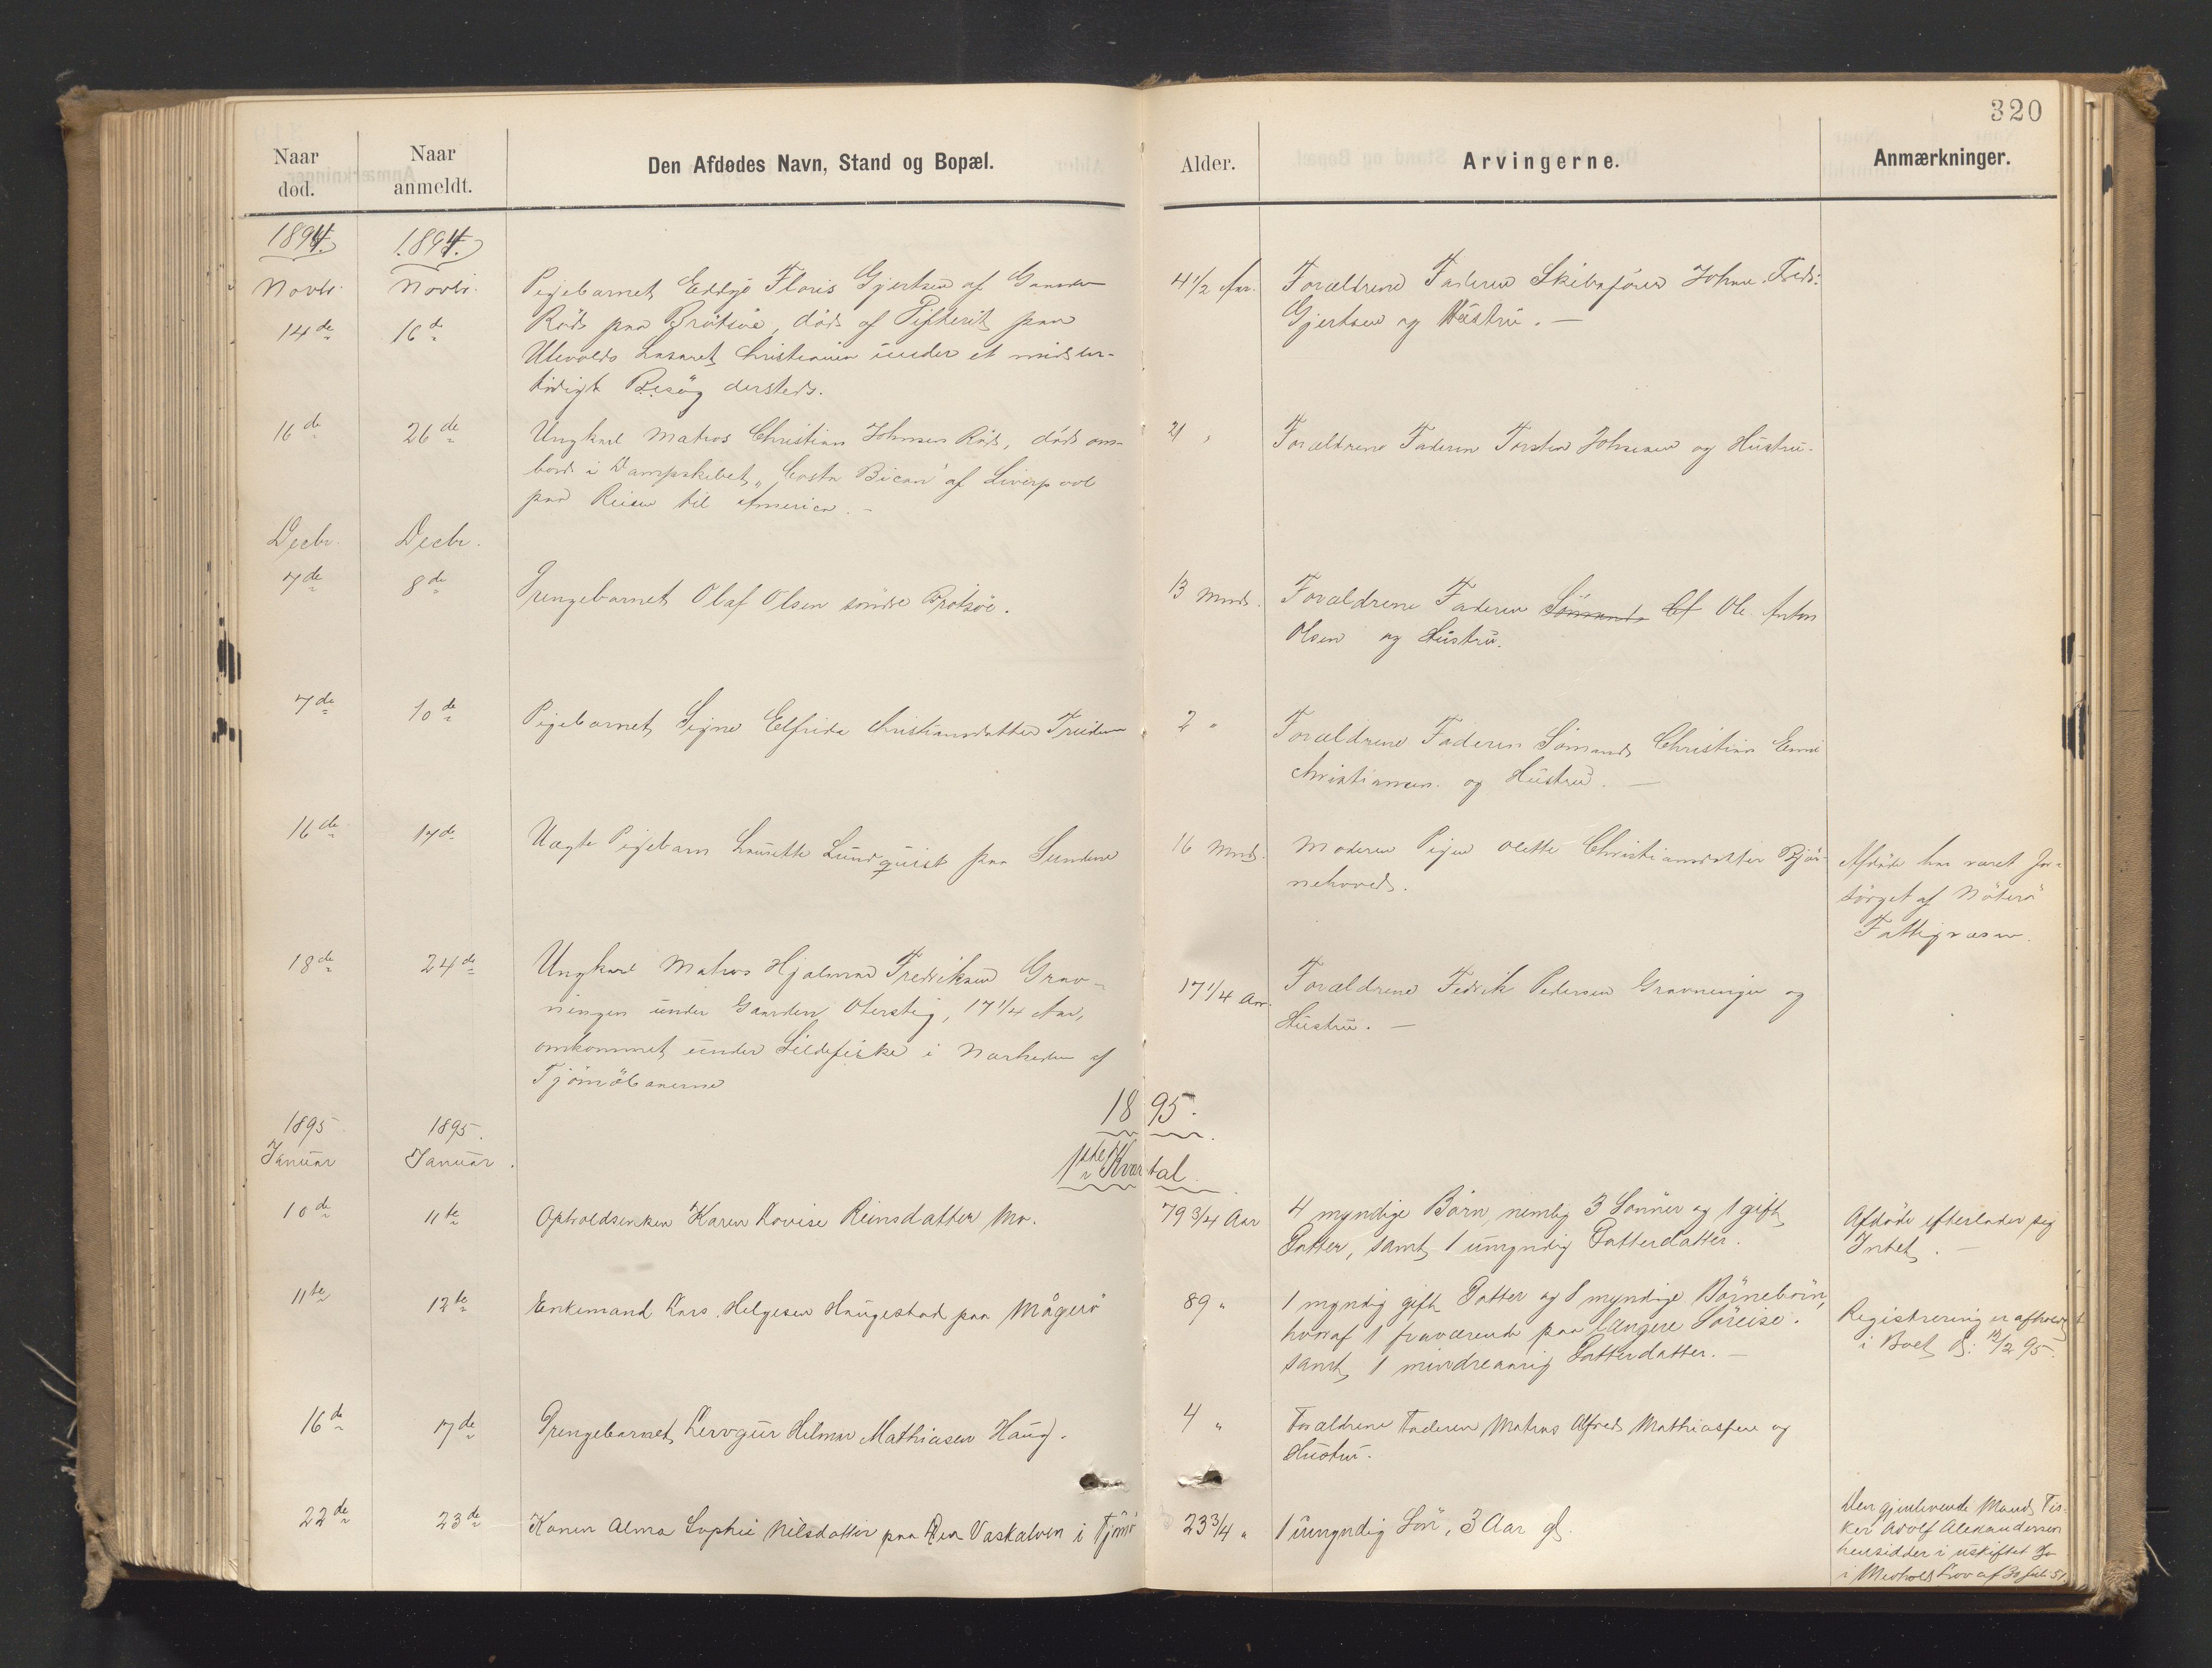 320
Naar død.
Naar anmeldt.
Den Afdødes Navn, Stand og Bopæl.
Alder.
Arvingerne.
Anmærkninger.
1894.
1894.
Novbr.
Novbr.
14de
16de
Pigebarnet Floris Gjertsen af
Röd paa Brötsöe, död af Difterit paa
Ulevolds Lasaret Christiania under et midler-
tidigt Besög dersteds.
4 1/2 Aar.
Forældrene Faderen Skibsförer Johan Fredr.
Gjertsen og Hustru. —
16de
26de
Ungkarl Matros Christian Johnsen Röd, död om-
bord i Dampskibet „Costa Rican" af Liverpool
paa Reisen til America. —
21 "
Forældrene Faderen Torsten Johnsen og Hustru.
Decbr.
Decbr.
7de
8de
Drengebarnet Olaf Olsen söndre Brötsöe.
13 Mnds.
Forældrene Faderen Sömand Ole Anton
Olsen og Hustru.
7de
10de
Pigebarnet Signe Elfrida Christiansdatter
2 "
Forældrene Faderen Sömand Christian Emil
Christiansen og Hustru. —
16de
17de
Uægte Pigebarn Laurette Lundquist paa Sundene
16 Mnds.
Moderen Pigen Olette Christiansdatter Bjør-
nehoved.
Afdöde har været for-
sörget af Nöterö
Fattigvæsen.
18de
24de
Ungkarl Matros Hjalmar Fredriksen Grav-
ningen under Gaarden Oterstig, 17 1/4 Aar,
omkommet under Sildefiske i Nærheden af
Tjömöbaaerne
17 1/4 Aar.
Forældrene Fedrik Pedersen Gravningen og
Hustru. —
1895
1895.
1895.
Januar
Januar.
1ste Kvartal.
10de
11te
Opholdsenken Karen Lovise Reinsdatter Mo.
79 3/4 Aar
4 myndige Börn, nemlig 3 Sönner og 1 gift
Datter, samt 1 umyndig Datterdatter.
Afdöde efterlader sig
Intet. —
11te
12te
Enkemand Lars Helgesen Haugestad paa Mågerö
89 "
1 myndig gift Datter og 8 myndige Börnebörn,
hvoraf 1 fraværende paa længere Söreise.
samt 1 mindreaarig Datterdatter. —
Registrering er afholdt
i Boet d: 12/2 95.
16de
17de
Drengebarnet Hilmar Mathiasen Haug.
4 "
Forældrene Faderen Matros Alfred Mathiassen og
Hustru.
22de
23de
Konen Alma Sophie Nilsdatter paa Vaskalven i Tjömö
23 3/4 "
1 umyndig Sön, 3 Aar gl.
Den gjenlevende Mand, Fis-
ker Adolf Alexandersen
hensidder i uskiftet Bo
i Medhold Lov af 30 Juli 51